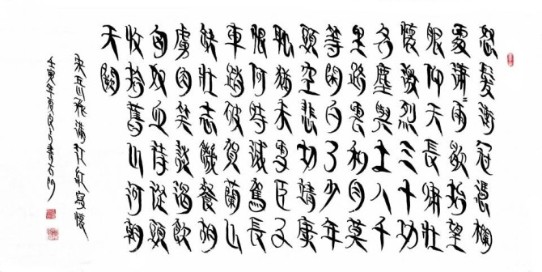 怒髮衝冠憑欄
處瀟〻雨歇抬望
眼仰天長嘯壯
懷激烈三十功
名塵與土八千
里路雲和月莫
等閒白了少年
頭空悲切靖康
恥猶未雪臣子
恨何時滅駕長
車踏破賀蘭山
缺壯志飢餐胡
虜肉笑談渴飲
匈奴血待從頭
收拾舊山河朝
天闕
宋岳飛滿江紅寫懷
壬寅年夏